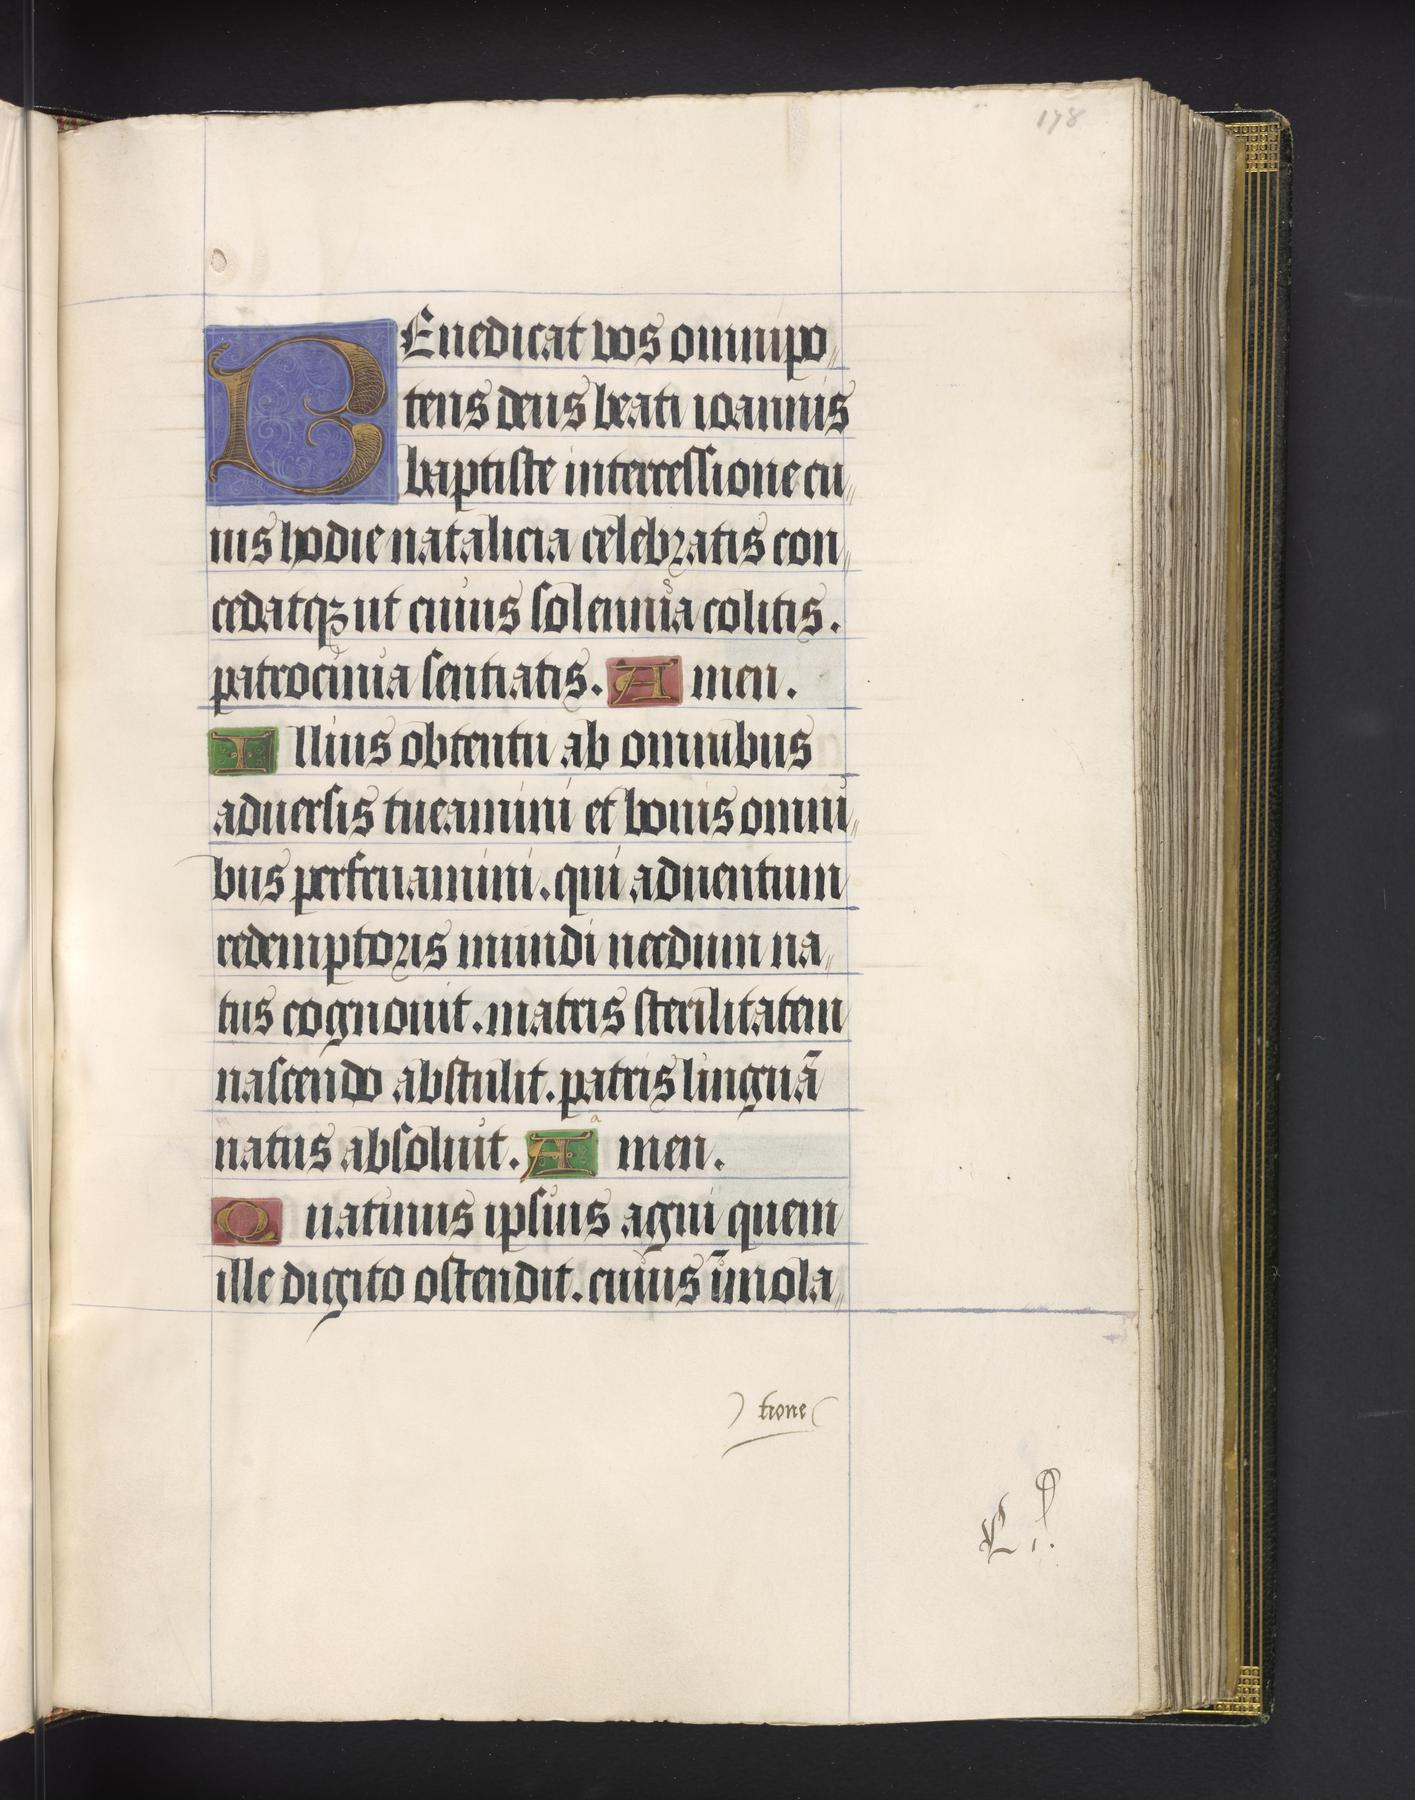 178
BEnedicat vos omnipo
tens deus beati ioannis
baptiste intercessione cu
ius hodie natalicia celebratis con
cedatqꝫ ut cuius solennia colitis.
patrocinia sentiatis. Amen.
Illius obtentu ab omnibus
aduersis tueamini et bonis omni
bus perfruamini. qui aduentum
redemptoris mundi necdum na
tus cognouit. matris sterilitatem
nascendo abstulit. patris linguã
natus absoluit. Amen.
Quatinus ipsius agni quem
ille digito ostendit. cuius ĩmola
tione